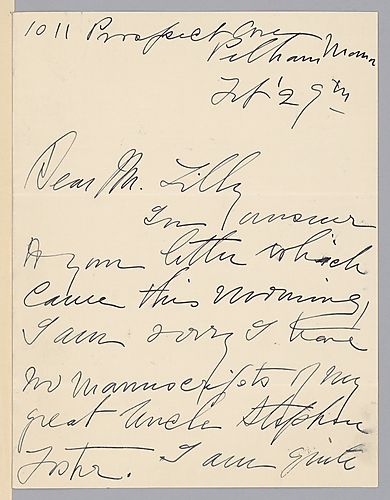 1011 Prospect Ave
Pelham Manor
Feb' 29th
Dear Mr. Lilly
In answer
to your letter which
came this morning,
I am sorry I have
no manuscripts of my
great Uncle Stephen
Foster. I am quite